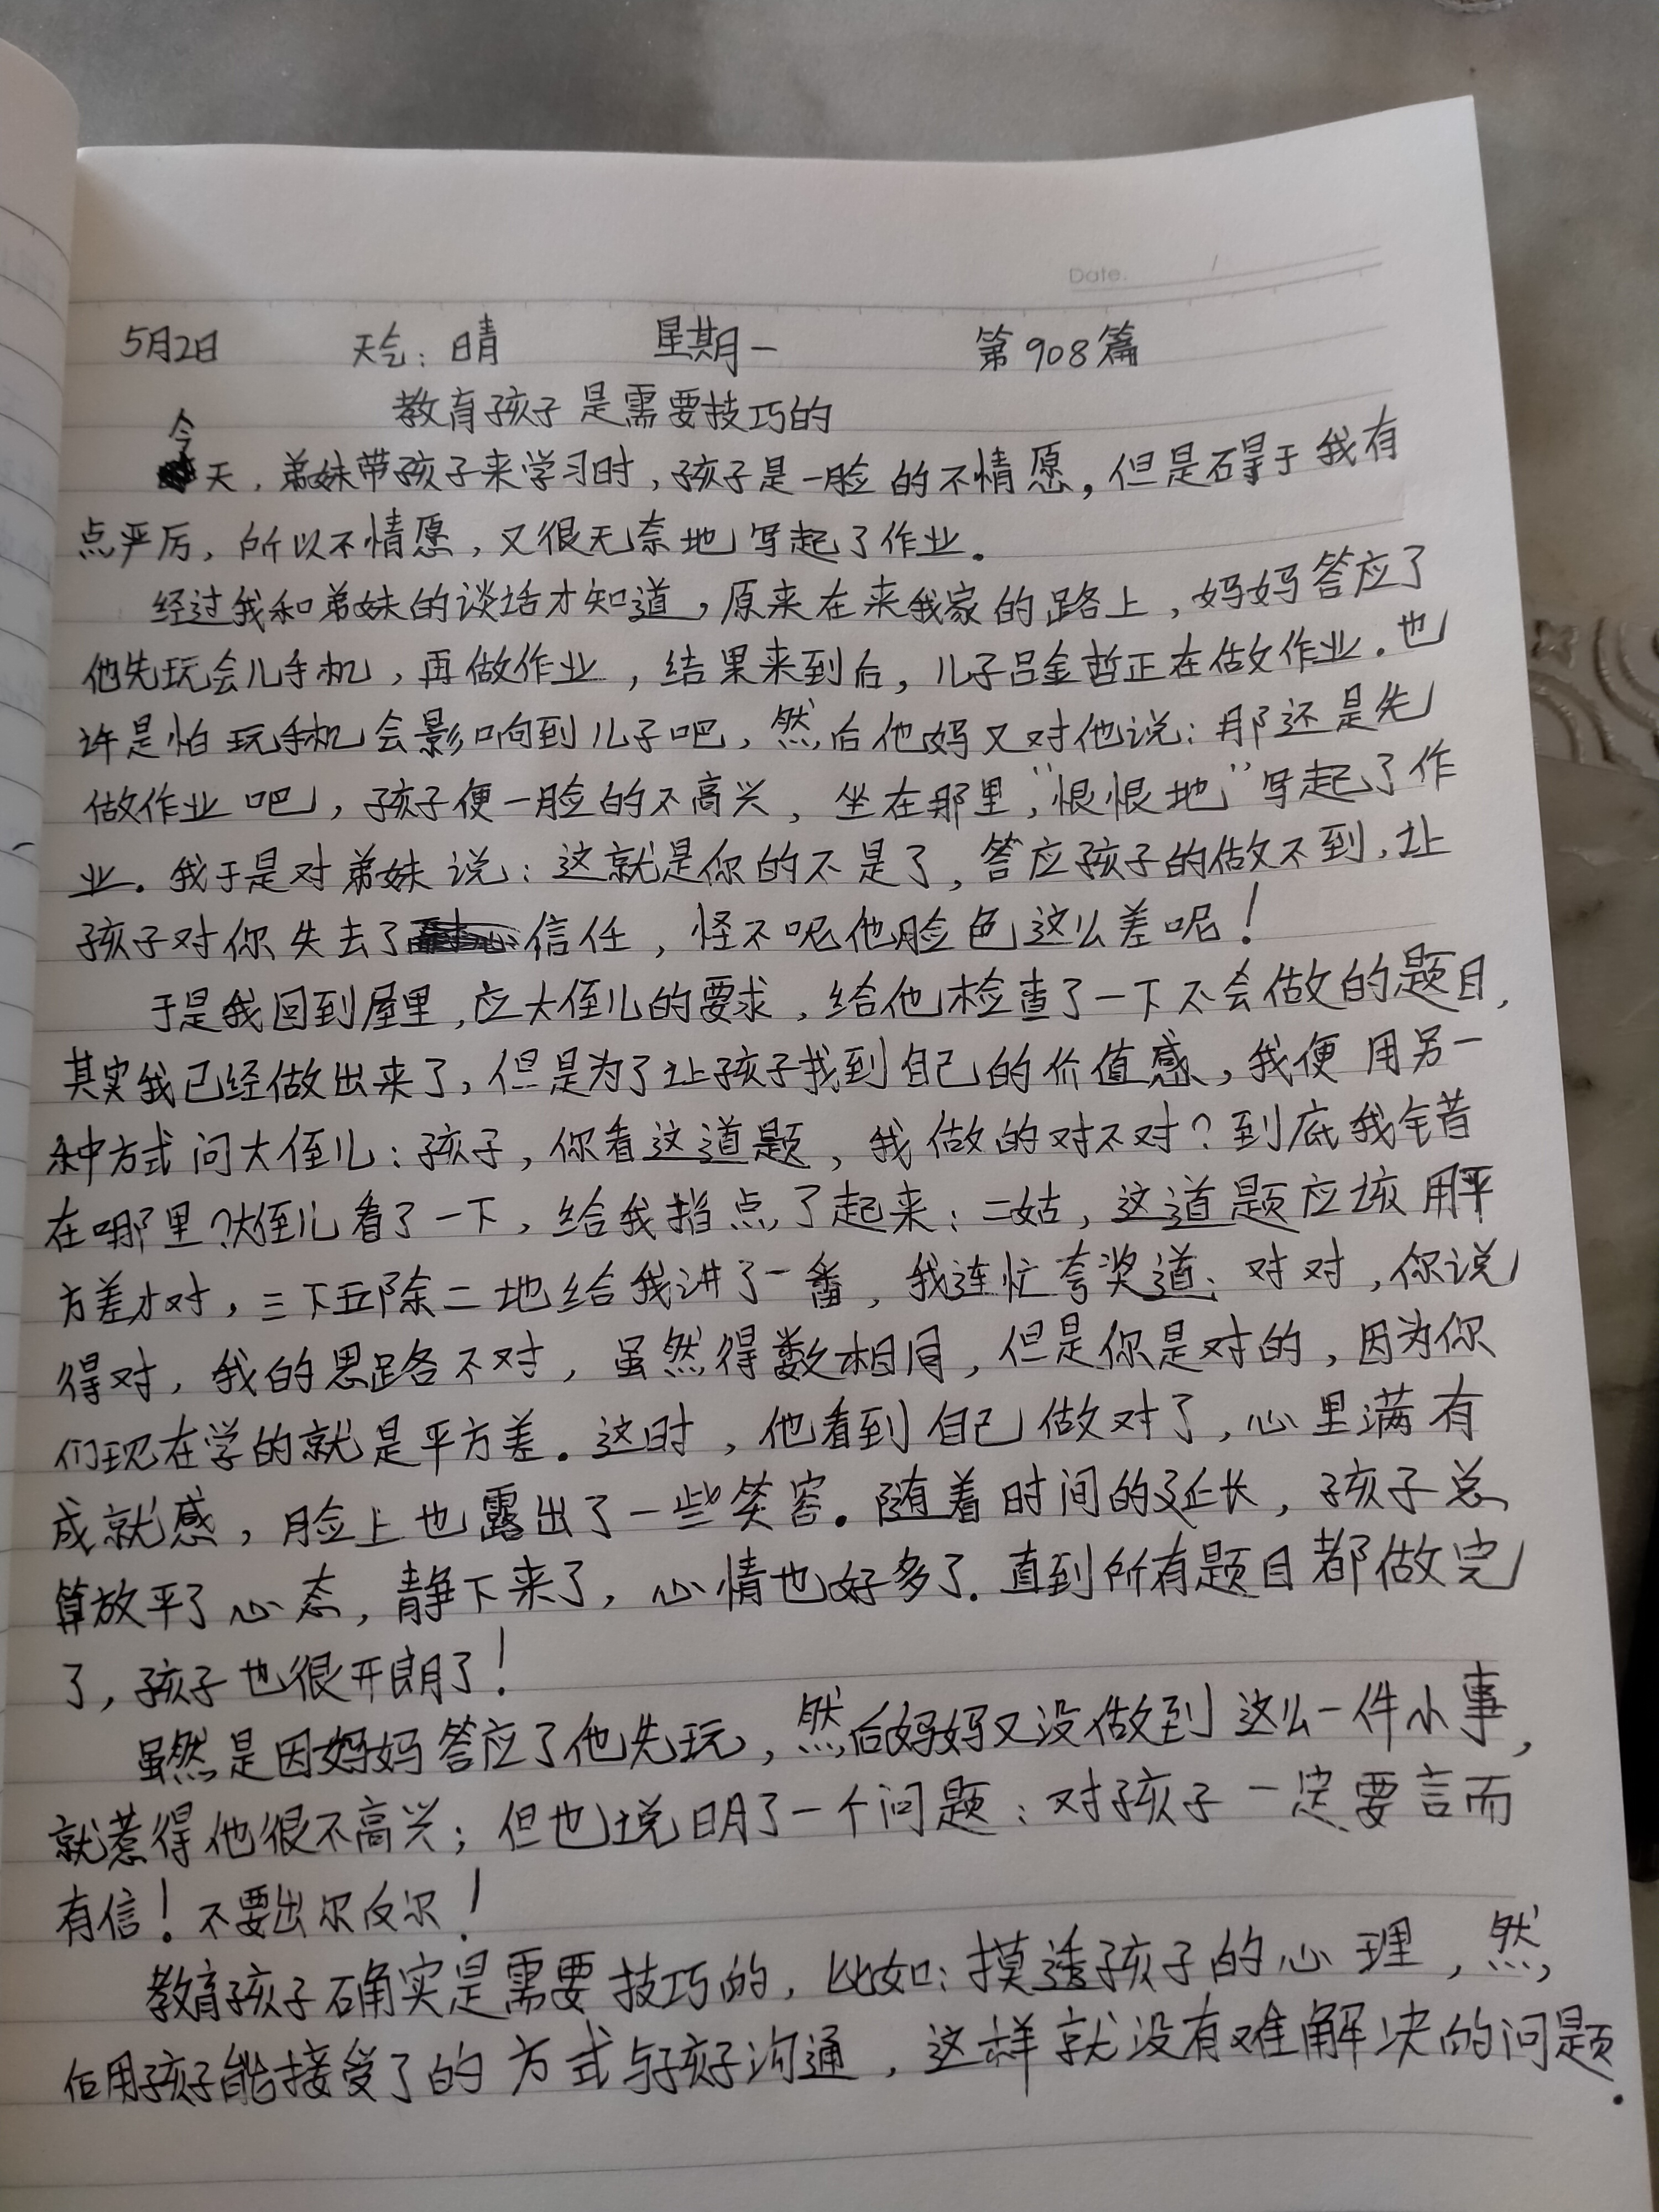 Date. /
5月2日 天气：晴 星期一 第908篇
教育孩子是需要技巧的
今天，弟妹带孩子来学习时，孩子是一脸的不情愿，但是碍于我有
点严厉，所以不情愿，又很无奈地写起了作业。
经过我和弟妹的谈话才知道，原来在来我家的路上，妈妈答应了
他先玩会儿手机，再做作业，结果来到后，儿子吕金哲正在做作业．也
许是怕玩手机会影响到儿子吧，然后他妈又对他说：那还是先
做作业吧，孩子便一脸的不高兴，坐在那里，“恨恨地”写起了作
业．我于是对弟妹说：这就是你的不是了，答应孩子的做不到，让
孩子对你失去了信任，怪不呢他脸色这么差呢！
于是我回到屋里，应大侄儿的要求，给他检查了一下不会做的题目，
其实我已经做出来了，但是为了让孩子找到自己的价值感，我便用另一
种方式问大侄儿：孩子，你看这道题，我做的对不对？到底我错
在哪里？大侄儿看了一下，给我指点了起来：二姑，这道题应该用平
方差才对，三下五除二地给我讲了一番，我连忙夸奖道：对对，你说
得对，我的思路不对，虽然得数相同，但是你是对的，因为你
们现在学的就是平方差．这时，他看到自己做对了，心里满有
成就感，脸上也露出了一些笑容．随着时间的延长，孩子总
算放平了心态，静下来了，心情也好多了．直到所有题目都做完
了，孩子也很开朗了！
虽然是因妈妈答应了他先玩，然后妈妈又没做到这么一件小事，
就惹得他很不高兴；但也说明了一个问题：对孩子一定要言而
有信！不要出尔反尔！
教育孩子确实是需要技巧的，比如：摸透孩子的心理，然
后用孩子能接受了的方式与孩子沟通，这样就没有难解决的问题．